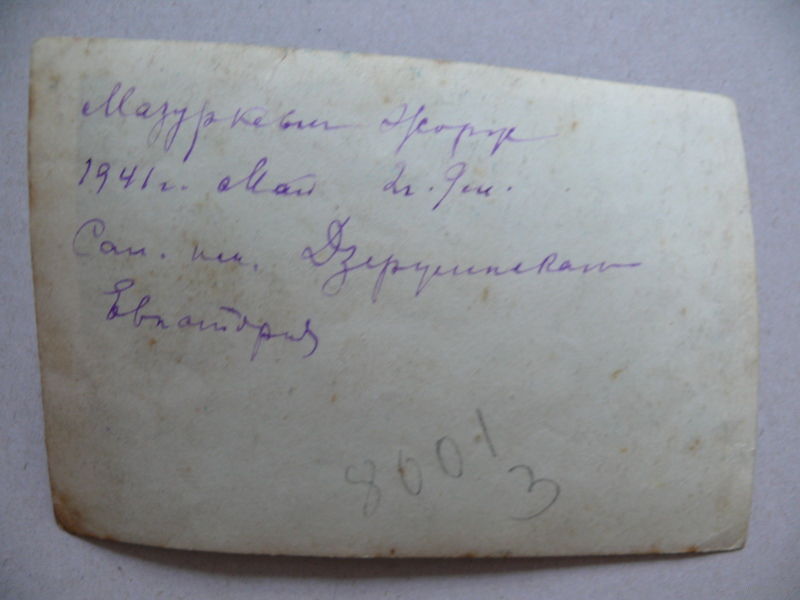 Мазуркевич Жорж
1941 г. Май 2 г. 9 м.
Сан. им. Дзержинского
Евпатория
8001
3